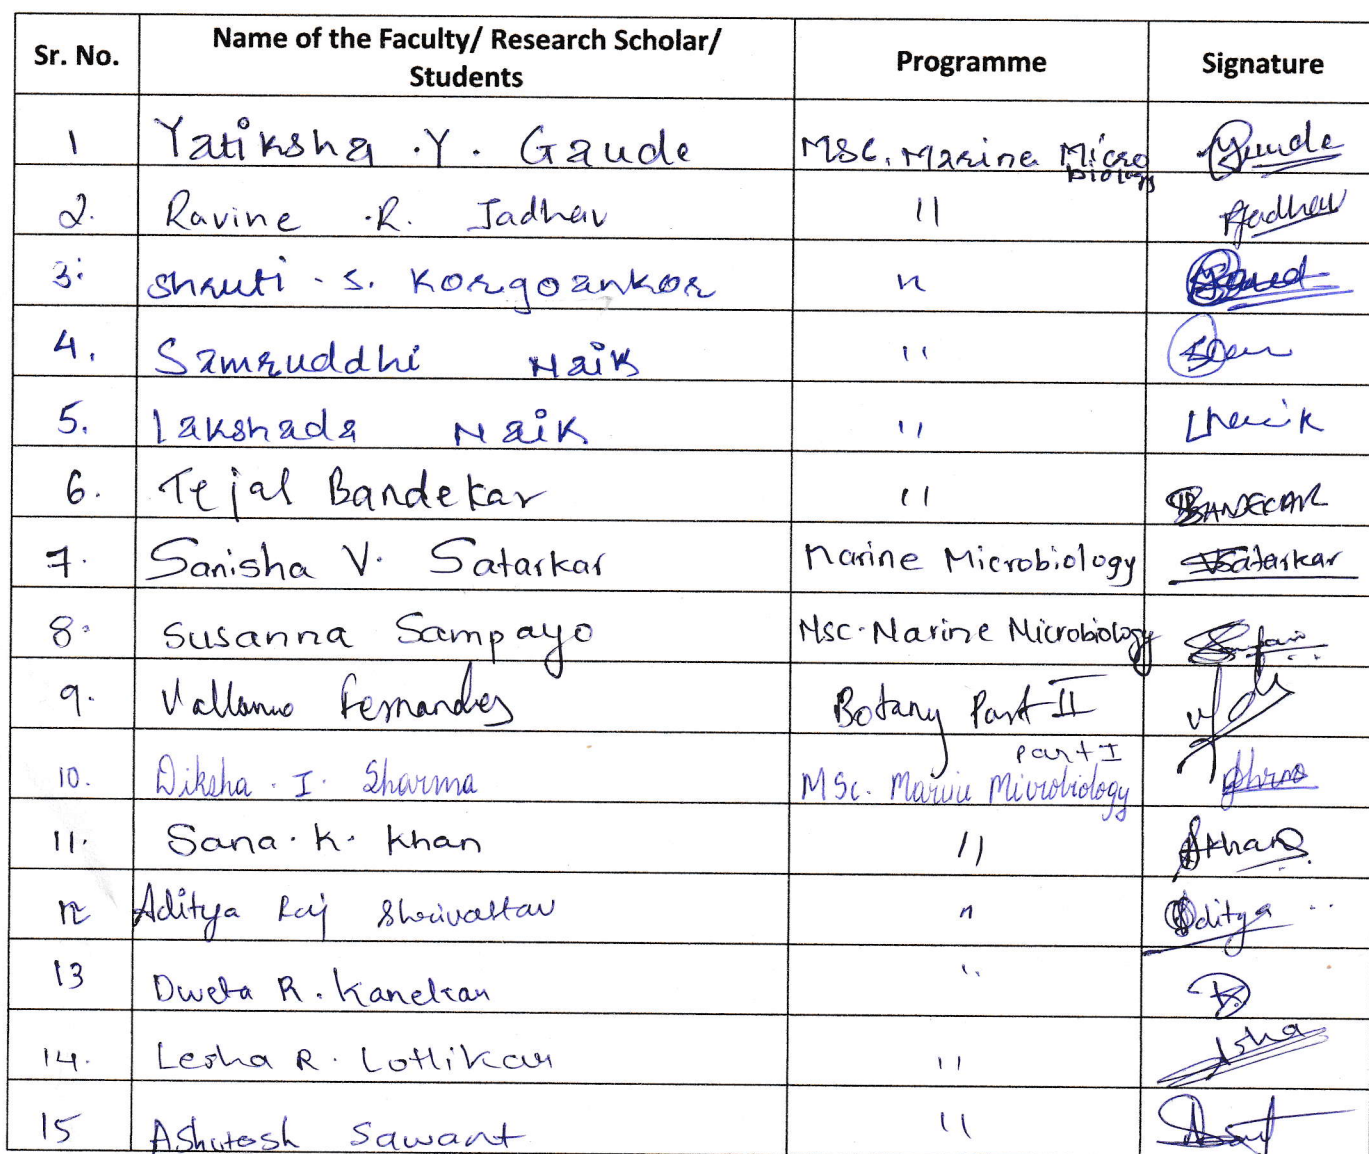 Sr. No. Name of the Faculty/ Research Scholar/ Students Programme Signature
1 Yatiksha .Y. Gaude MSC. Marine Micro biology Gaude
2. Ravine .R. Jadhav 11 RJadhav
3. Shruti . S. Korgoankor 11
4. Samruddhi Naik 11
5. Lakshada Naik 11 LNaik
6. Tejal Bandekar 11 BANDECAR
7. Sanisha V. Satarkar Marine Microbiology VSatarkar
8. Susanna Sampayo Msc. Marine Microbiology
9. Fernandes Botany Part II
10. Diksha . I. Sharma MSc. Marine Microbiology Part I
11. Sana. K. Khan 11 SKhan
12 Aditya Raj Shrivastav 11 Aditya
13 Dweta R. Kanekar 11
14. Lesha R. Lotlikar 11
15 Ashutosh Sawant 11